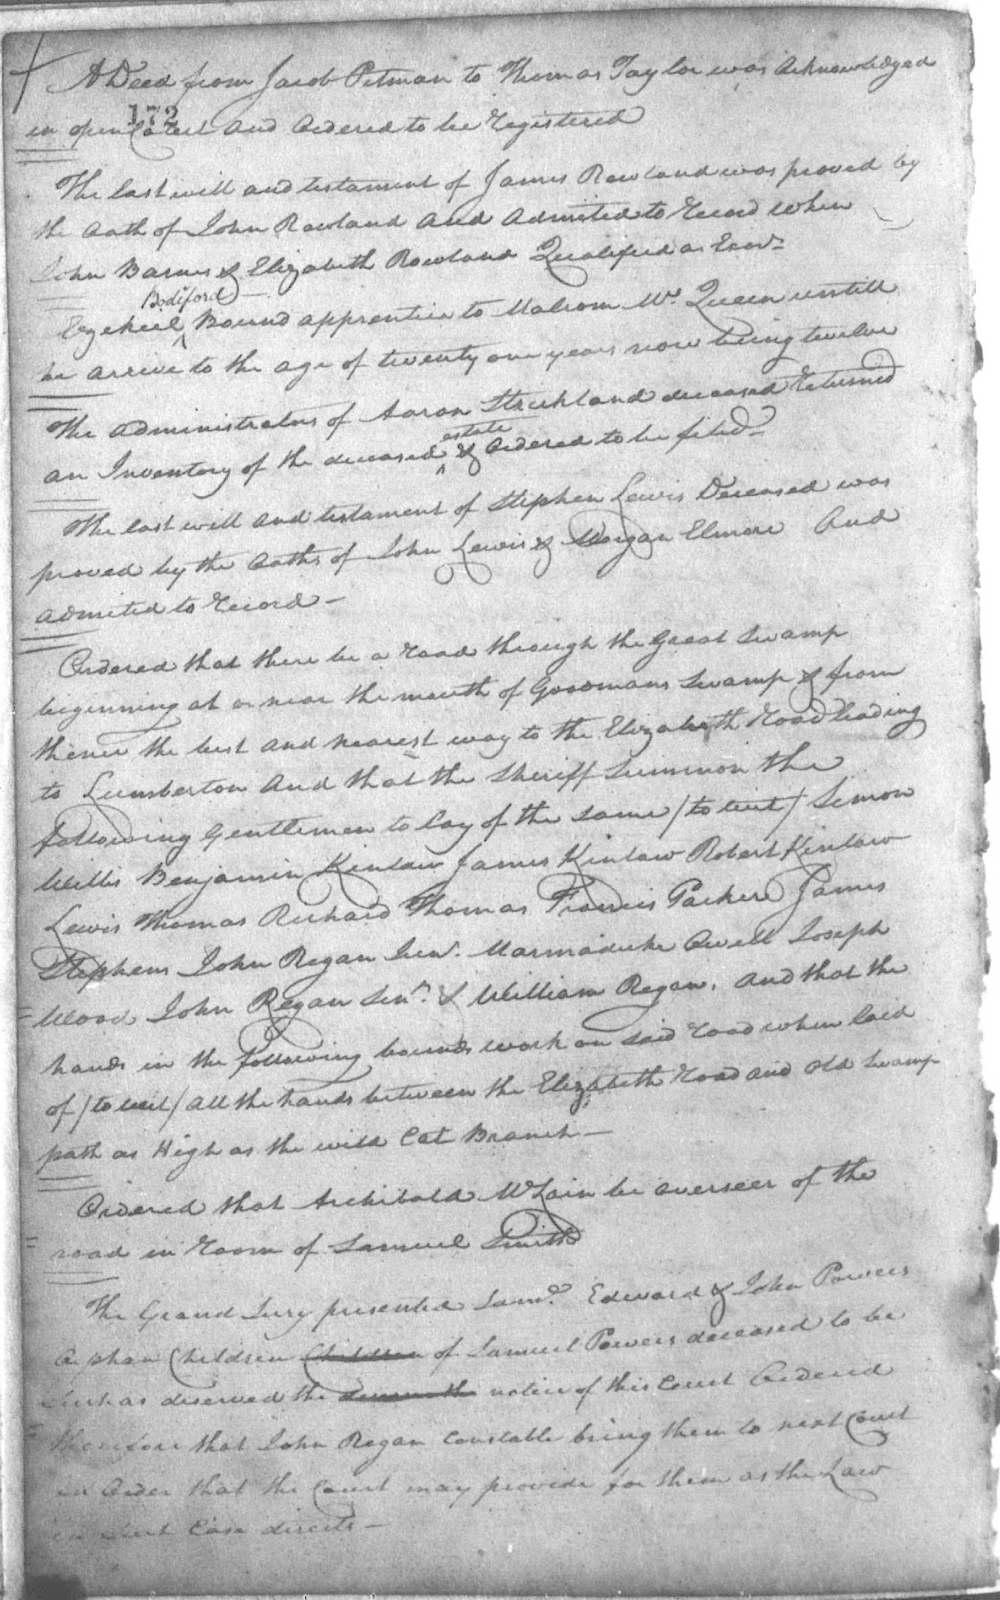 A Deed from Jacob Pitman to Thomas Taylor was Acknowledged
172
in open Court and Ordered to be Registered
The last will and testament of James Rowland was proved by
the Oath of John Rowland and Admited to Record when
John Barnes & Elizabeth Rowland Qualified as Exrs.
Bodiford
Ezekiel ^ Bound apprentice to Malcom Mc Queen untill
he arrive to the age of twenty one years now being twelve
The Administrators of Aaron Strickland deceased Returned
estate
an Inventory of the deceased ^ & Ordered to be filed
The last will and testament of Stephen Lewis Deceased was
proved by the Oaths of John Lewis & Morgan Elmore And
admited to Record
Ordered that there be a road through the Great Swamp
beginning at or near the mouth of Goodmans Swamp & from
thence the best and nearest way to the Elizabeth Road leading
to Lumberton And that the Sheriff Summon the
following Gentlemen to lay of the same / to wit / Simon
Willis Benjamin Kinlaw James Kinlaw Robert Kinlaw
Lewis Thomas Richard Thomas Francis Parker James
Stephens John Regan Junr. Marmaduke Owell Joseph
Wood John Regan Senr. & William Regan, and that the
hands in the following bounds work on said road when laid
of / to wit / all the hands between the Elizabeth Road and Old Swamp
path as High as the wild Cat Branch
Ordered that Archibald McLain be overseer of the
road in Room of Samuel Smith
The Grand Jury presented Saml. Edward & John Powers
Orphan Children Children of Samuel Powers deceased to be
such as deserved the notice of this Court Ordered
therefore that John Regan Constable bring them to next Court
in Order that the Court may provide for them as the Law
in such Case directs